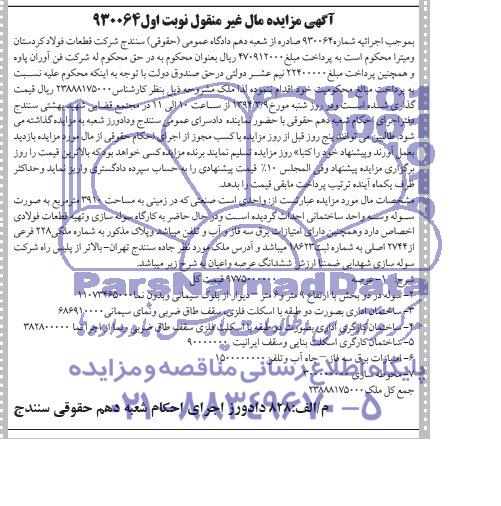 آگهی مزایده مال غیر منقول نوبت اول ۹۳۰۰۶۴
بموجب اجرائیه شماره ۹۳۰۰۶۴ صادره از شعبه دهم دادگاه عمومی (حقوقی) سنندج شرکت قطعات فولاد کردستان
ومیترا محکوم است به پرداخت مبلغ ۴۷۰۹۱۲۰۰۰ ریال بعنوان محکوم به در حق محکوم له شرکت فن آوران پاوه
و همچنین پرداخت مبلغ ۲۲۴۰۰۰۰۰ نیم عشر دولتی درحق صندوق دولت با توجه به اینکه محکوم علیه نسبت
به پرداخت مبالغ محکومیت خود اقدام ننموده لذا ملک مشروحه ذیل بنظر کارشناس ۲۳۸۸۸۱۷۵۰۰۰ ریال قیمت
گذاری شده است ودر روز شنبه مورخ ۱۳۹۴/۳/۹ از ساعت ۱۰ الی ۱۱ در مجتمع قضایی شهید بهشتی سنندج
دفتر اجرای احکام شعبه دهم حقوقی با حضور نماینده دادسرای عمومی سنندج ودادورز شعبه به مزایده گذاشته می
شود. طالبین می توانند پنج روز قبل از روز مزایده با کسب مجوز از اجرای احکام حقوقی از مال مورد مزایده بازدید
بعمل آورند وپیشنهاد خود را کتبا" روز مزایده تسلیم نمایند برنده مزایده کسی خواهد بود که بالاترین قیمت را روز
برگزاری مزایده پیشنهاد وفی المجلس ۱۰٪ قیمت پیشنهادی را به حساب سپرده دادگستری واریز نماید وحداکثر
ظرف یکماه آینده ترتیب پرداخت مابقی قیمت را بدهد.
مشخصات مال مورد مزایده عبارتست از: واحدی است صنعتی که در زمینی به مساحت ۳۹۱۰ مترمربع به صورت
سوله وسه واحد ساختمانی احداث گردیده است ودر حال حاضر به کارگاه سوله سازی وتهیه قطعات فولادی
اختصاص دارد وهمچنین دارای امتیازات برق سه فاز و آب و تلفن میباشد وپلاک مذکور به شماره ملکی ۲۲۸ فرعی
از ۲۷۴۴ اصلی به شماره ثبت ۱۸۶۲۳ میباشد و آدرس ملک مورد نظر جاده سنندج تهران- بالاتر از پلیس راه شرکت
سوله سازی شهدایی ضمنا ارزش ششدانگ عرصه واعیان به شرح زیر میباشد.
شرح: ۱- عرصه ۹۷۷۵۰۰۰۰۰۰ قیمت کل
۲- سوله در دو بخش با ارتفاع ۹ متر و ۶ متر - دیوار از بلوک سیمانی وبدون نما ۱۱۰۷۳۴۶۵۰۰۰
۳- ساختمان اداری بصورت دو طبقه با اسکلت فلزی، سقف طاق ضربی ونمای سیمانی ۶۸۶۹۱۰۰۰۰
۴- ساختمان کارگری اداری بصورت دو طبقه با اسکلت فلزی سقف طاق ضربی ونما از آجر نما ۳۸۲۸۰۰۰۰۰
۵- ساختمان کارگری اسکلت بنایی وسقف ایرانیت ۹۰۰۰۰۰۰۰
۶- امتیازات برق سه فاز – چاه آب وتلفن ۱۵۰۰۰۰۰۰۰۰
۷- محوطه سازی
جمع کل ملک ۲۳۸۸۸۱۷۵۰۰۰
م/الف: ۸۲۸ دادورز اجرای احکام شعبه دهم حقوقی سنندج
ParsNamadData
پایگاه اطلاع رسانی مناقصه و مزایده
۰۲۱-۸۸۳۴۹۶۷۰-۵